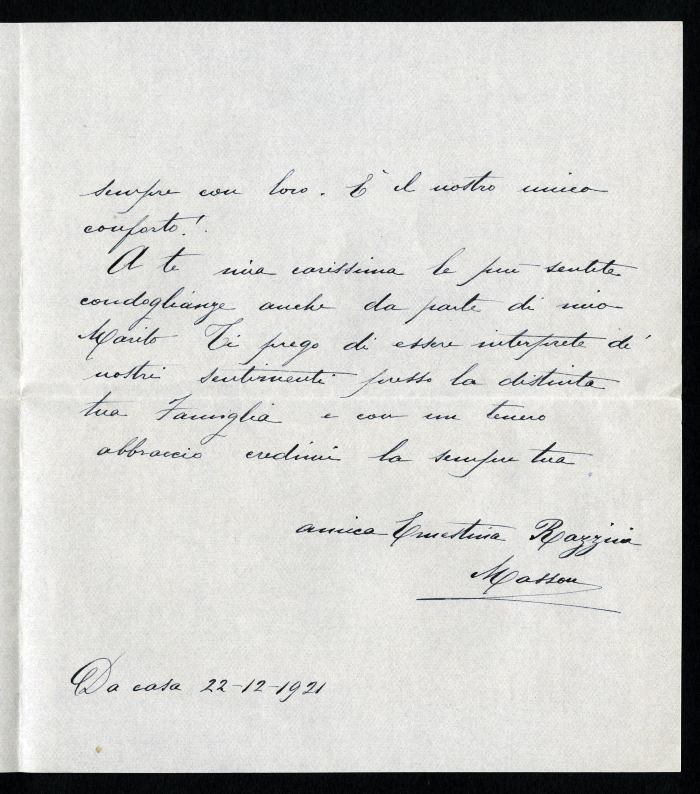 sempre con loro. È il nostro unico
conforto!
A te mia carissima le più sentite
condoglianze anche da parte di mio
Marito Ti prego di essere interprete de'
nostri sentimenti presso la distinta
tua Famiglia e con un tenero
abbraccio credimi la sempre tua
amica Ernestina Razzini
Masson
Da casa 22-12-1921